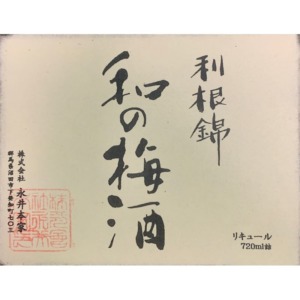 利根錦
和の梅酒
株式会社 永井本家
群馬県沼田市下発知町七〇三
リキュール
720ml詰